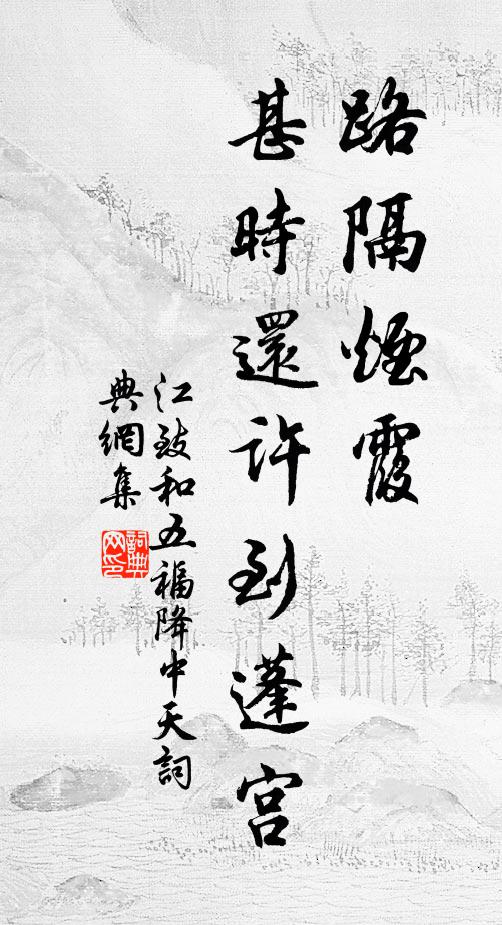 路隔煙霞
甚時還許到蓬宮
江致和五福降中天詞
典網集
詞典网印